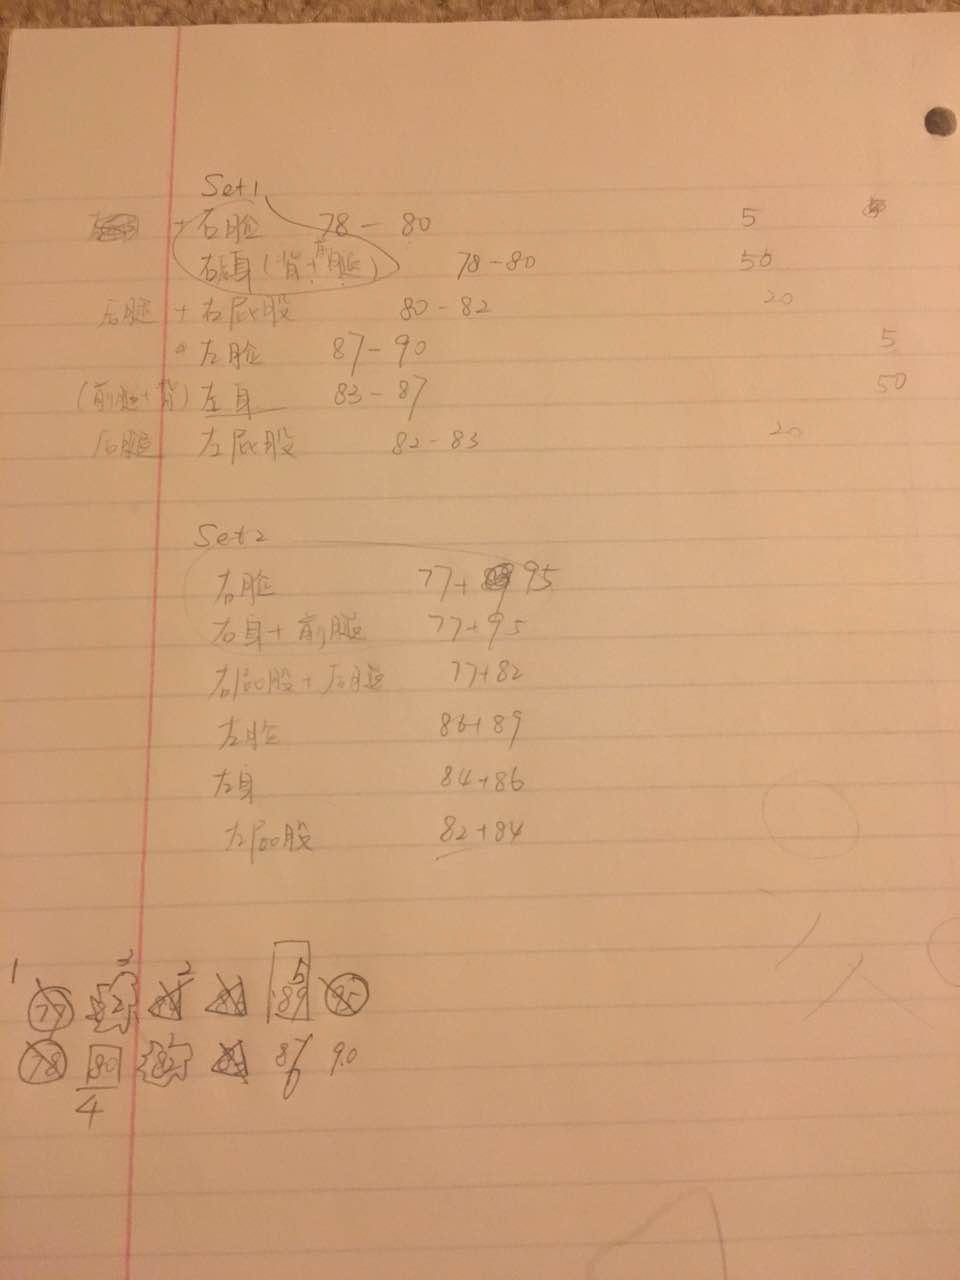 Set1
右脸 78-80 5
右身(背+前腿) 78-80 50
后腿 + 右屁股 80-82 20
左脸 87-90 5
(前腿+背) 左身 83-87 50
后腿 左屁股 82-83 20
Set2
右脸 77+ 95
右身+前腿 77+95
右屁股+后腿 77+82
左脸 86+89
左身 84+86
左屁股 82+84
1 2 2 5
77 82 84 86 89 95
78 80 82 83 87 90
4 6